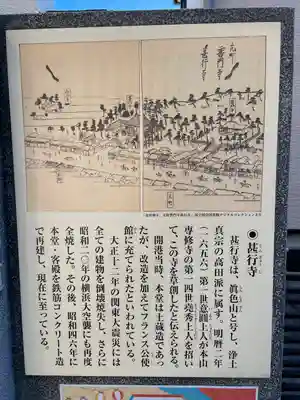 ●甚行寺
甚行寺は、眞色山と号し、浄土
真宗の高田派に属す。明暦二年
(一六五六)第一世意圓上人が本山
専修寺の第一四世堯秀上人を招い
て、この寺を草創したと伝えられる。
開港当時、本堂は土蔵造であっ
たが、改造を加えてフランス公使
館に充てられたといわれている。
大正十二年の関東大震災には
全ての建物を倒壊焼失し、さらに
昭和二〇年の横浜大空襲にも再度
全焼した。その後、昭和四六年に
本堂・客殿を鉄筋コンクリート造
で再建し、現在に至っている。
甚行寺